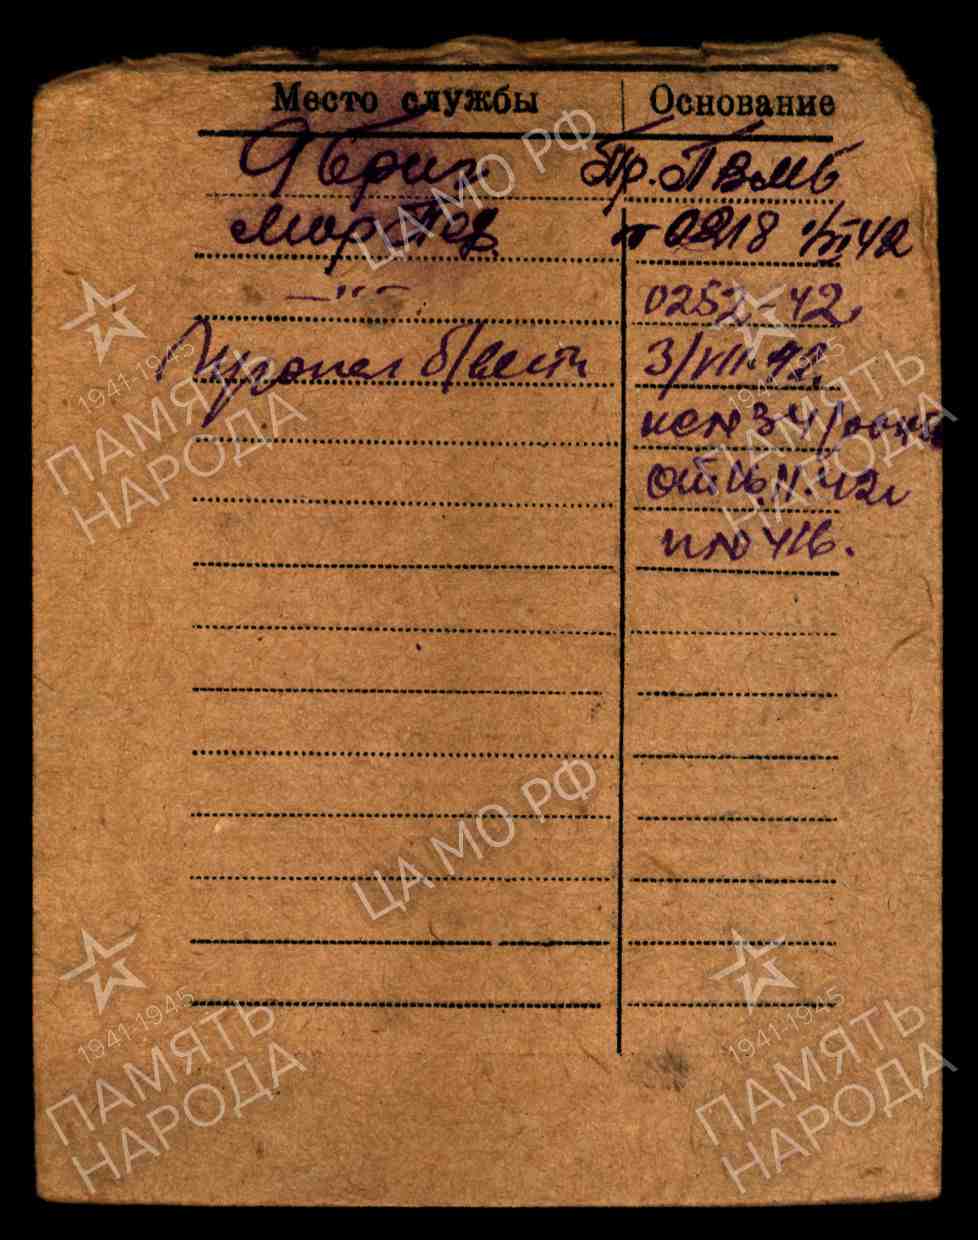 Место службы Основание
9 бриг. Пр. ПВМБ
МорПех 0218 42
—"— 0252-42.
Пропал б/вести 3/VII-42.
исх № 34/
от 16.11.42г
п № 416.
ЦА МО РФ
1941-1945
ПАМЯТЬ
НАРОДА
1941-1945
ПАМЯТЬ
НАРОДА
ЦА МО РФ
1941-1945
ПАМЯТЬ
НАРОДА
1941-1945
ПАМЯТЬ
НАРОДА